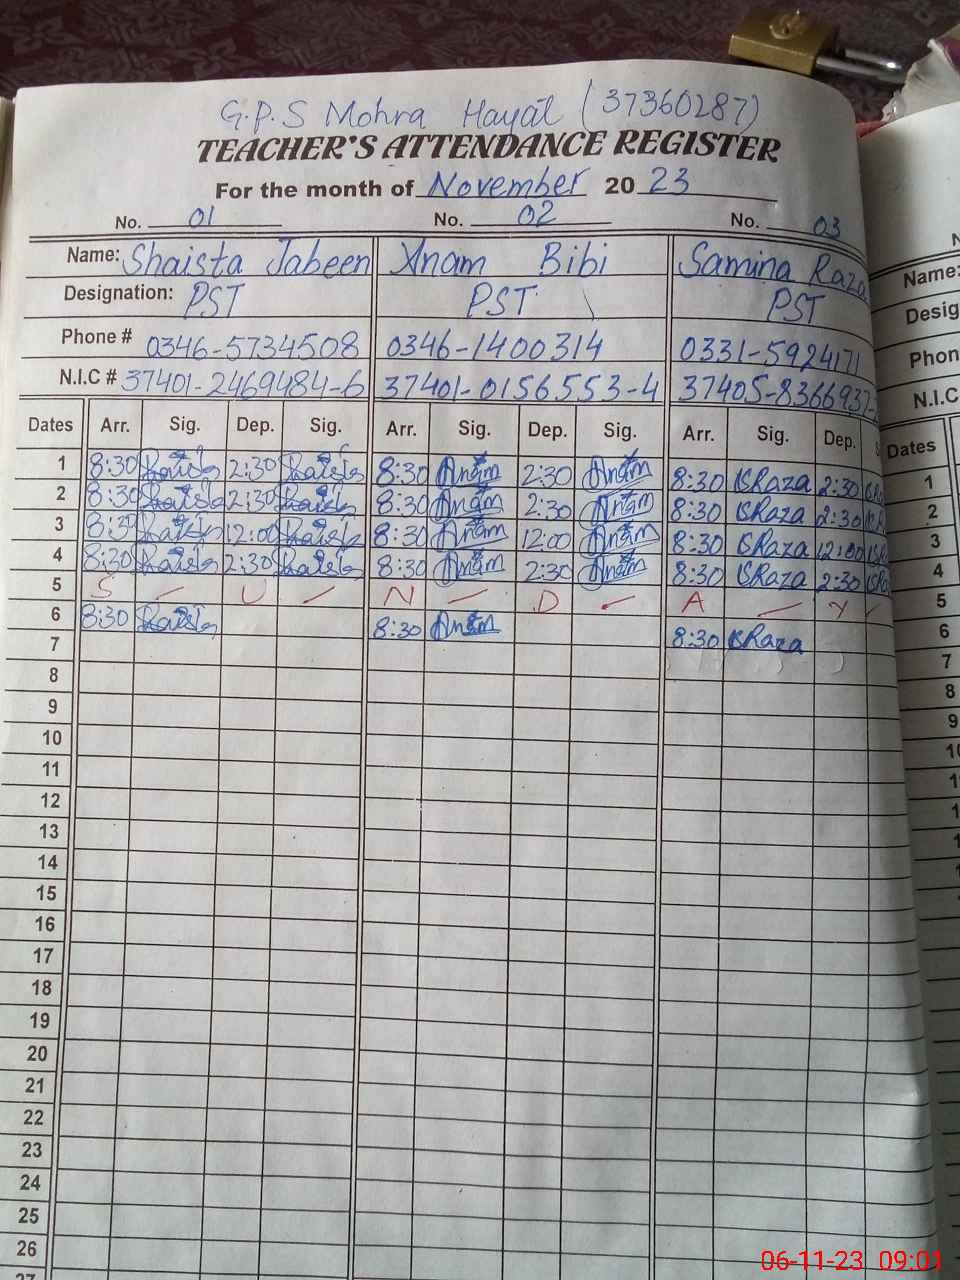 G.P.S Mohra Hayat (37360287)
TEACHER'S ATTENDANCE REGISTER
For the month of November 20 23
No. 01 No. 02 No. 03
Name: Shaista Jabeen Anam Bibi Samina Raza Name:
Designation: PST PST PST Desig
Phone # 0346-5734508 0346-1400314 0331-5924171 Phon
N.I.C # 37401-2469484-6 37401-0156553-4 37405-8366937- N.I.C
Dates Arr. Sig. Dep. Sig. Arr. Sig. Dep. Sig. Arr. Sig. Dep. S Dates
1 8:30 Shaista 2:30 Shaista 8:30 Anam 2:30 Anam 8:30 SRaza 2:30 1
2 8:30 Shaista 2:30 Shaista 8:30 Anam 2:30 Anam 8:30 SRaza 2:30 2
3 8:30 Shaista 12:00 Shaista 8:30 Anam 12:00 Anam 8:30 SRaza 12:00 3
4 8:30 Shaista 2:30 Shaista 8:30 Anam 2:30 Anam 8:30 SRaza 2:30 4
5 S U N D A Y 5
6 8:30 Shaista 8:30 Anam 8:30 SRaza 6
7 7
8 8
9 9
10 10
11
12
13
14
15
16
17
18
19
20
21
22
23
24
25
26
27
06-11-23 09:01